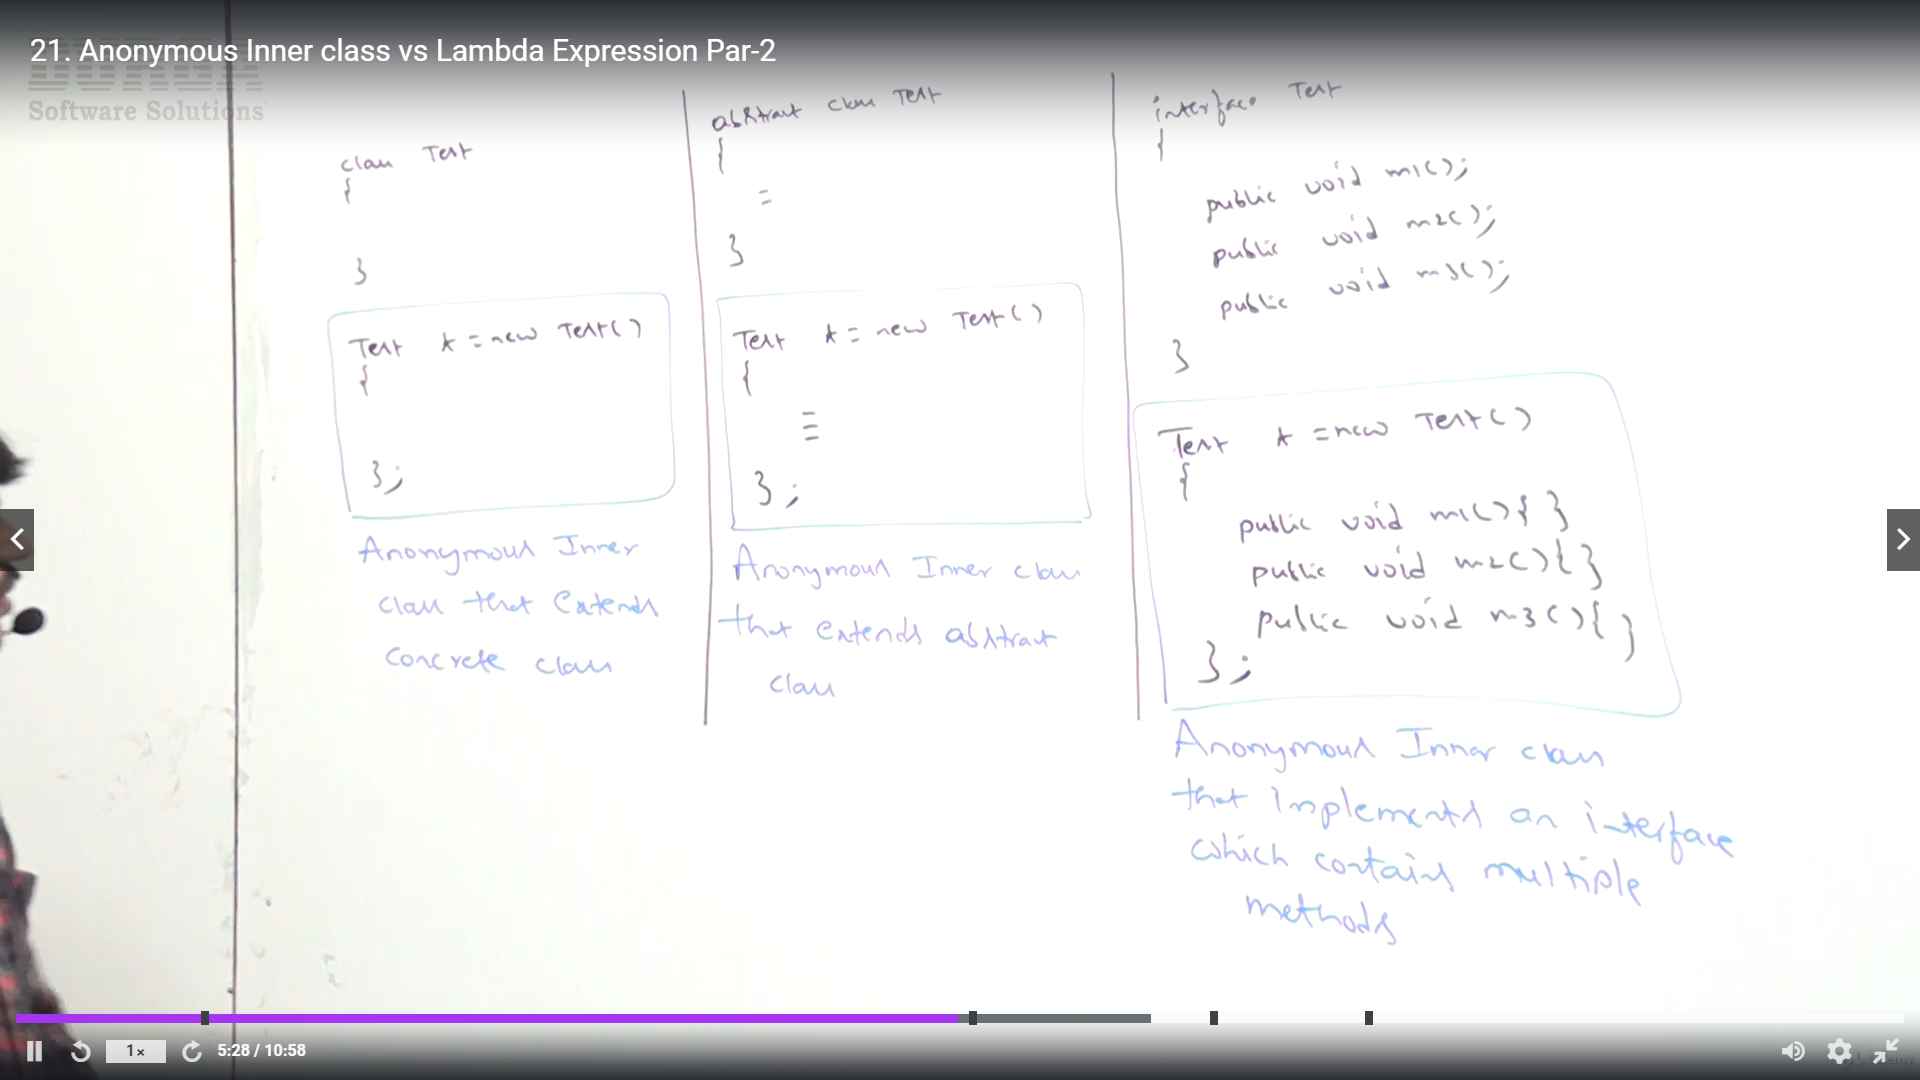 21. Anonymous Inner class vs Lambda Expression Par-2
DURGA
Software Solutions
class Test
{
}
Test t = new Test()
{
};
Anonymous Inner
class that extends
concrete class
abstract class Test
{
=
}
Test t = new Test()
{
};
Anonymous Inner class
that extends abstract
class
interface Test
{
public void m1();
public void m2();
public void m3();
}
Test t = new Test()
{
public void m1(){ }
public void m2(){ }
public void m3(){ }
};
Anonymous Inner class
that implements an interface
which contains multiple
methods
1×
5:28 / 10:58